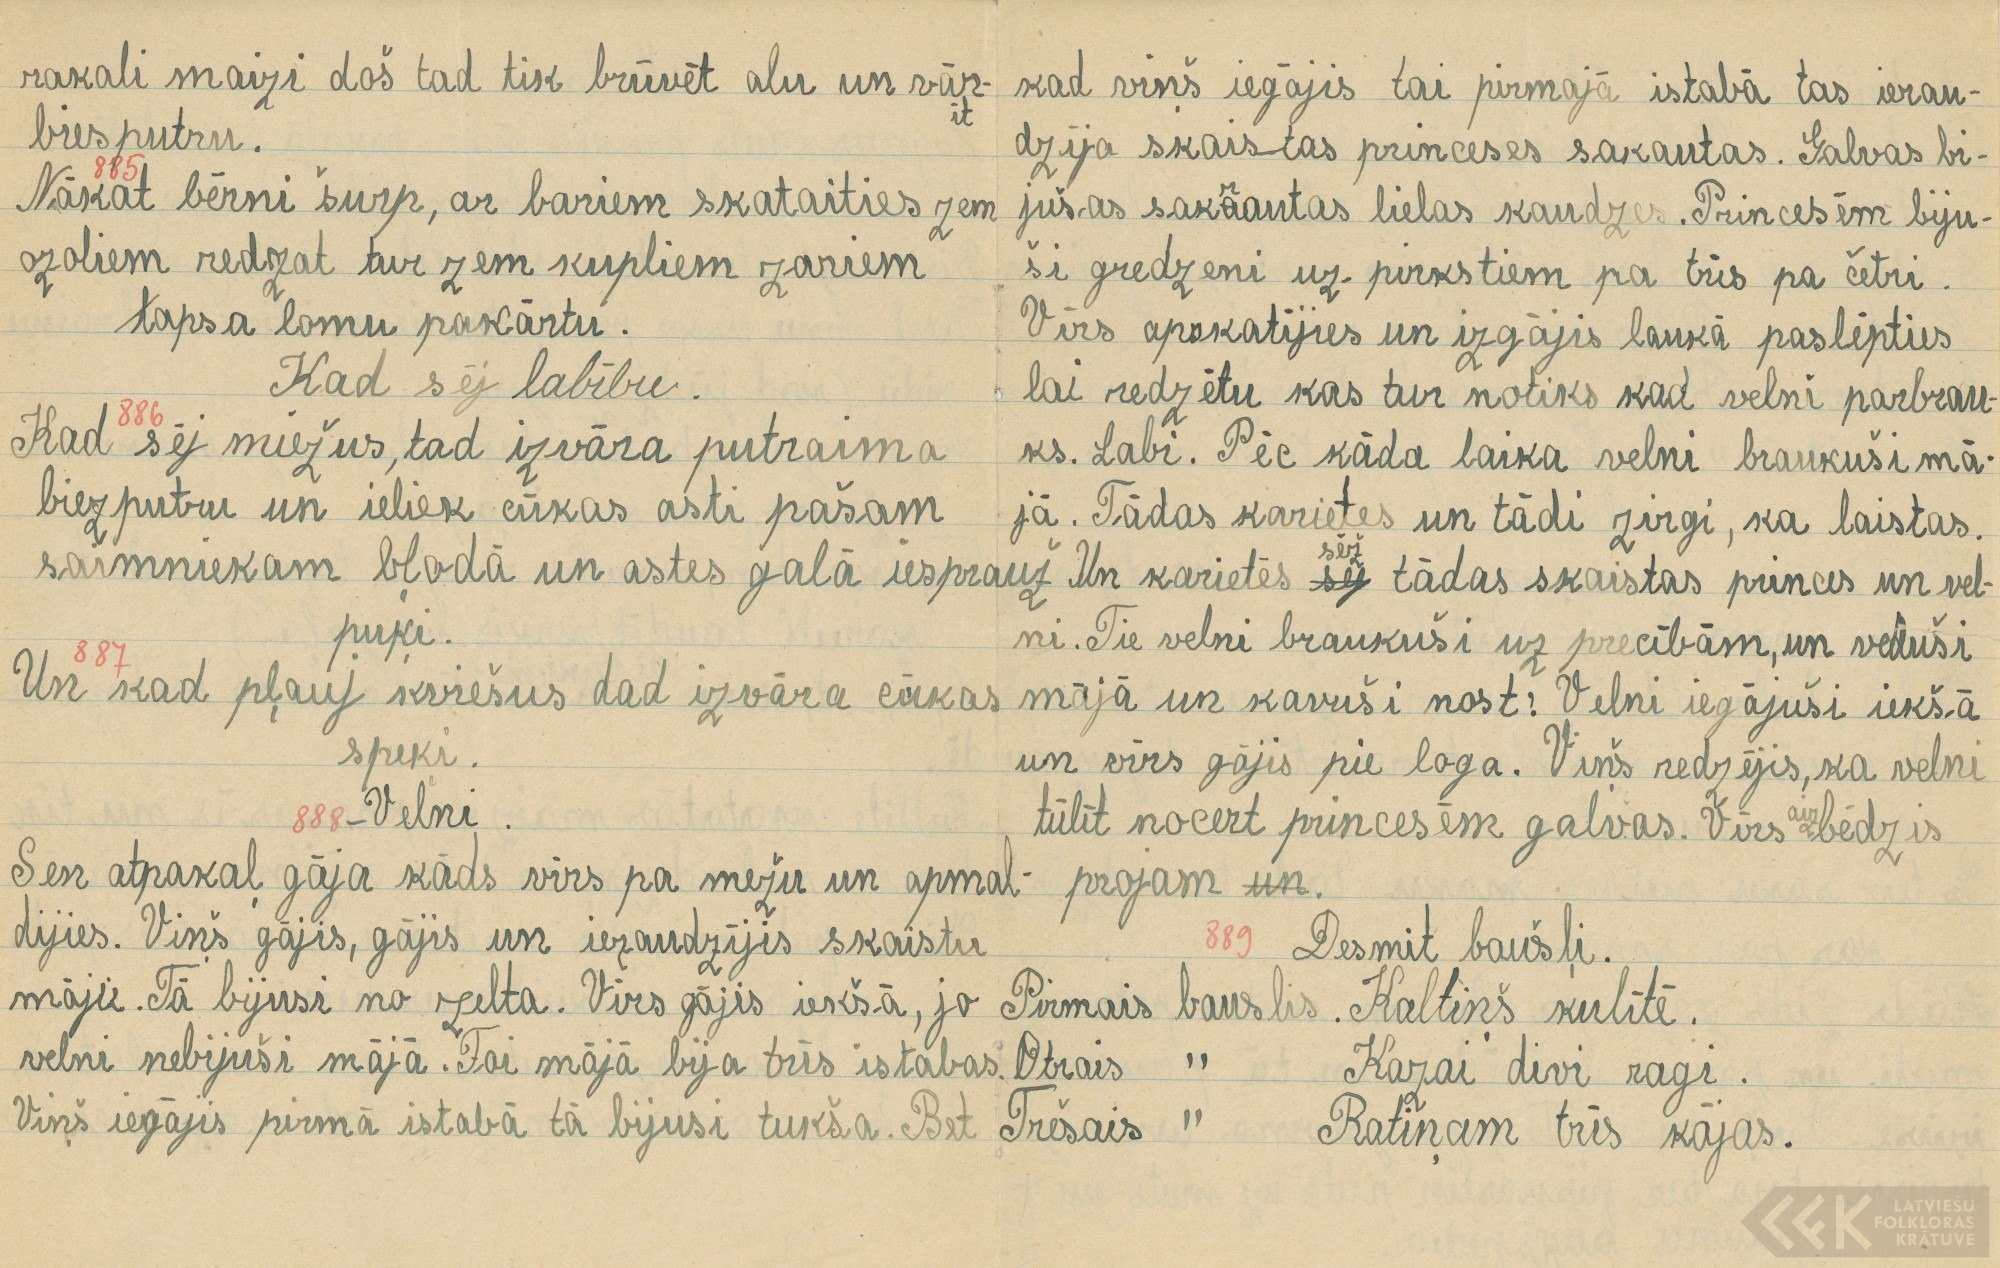 rakali maizi doš tad tik brūvēt alu un vār-
it
biesputru.
885
Nākat bērni šurp, ar bariem skataities zem
ozoliem redzat tur zem kupliem zariem
tapsa lomu pakārtu.
Kad sēj labību.
886
Kad sēj miežus, tad izvāra putraima
biezputru un ieliek cūkas asti pašam
saimniekam bļodā un astes galā iesprauž
puķi.
887
Un kad pļauj kviešus dad izvāra cūkas
speki.
888 – Velni.
Sen atpakaļ gāja kāds vīrs pa mežu un apmal-
dijies. Viņš gājis, gājis un ieraudzījis skaistu
māju. Tā bijusi no zelta. Vīrs gājis iekš-ā, jo
velni nebijuši mājā. Tai mājā bija trīs istabas.
Viņš iegājis pirmā istabā tā bijusi tukša. Bet
kad viņš iegājis tai pirmajā istabā tas ierau-
dzīja skaistas princeses sakautas. Galvas bi-
juš-as sakrautas lielas kaudzes. Princesēm biju-
ši gredzeni uz pirkstiem pa trīs pa četri.
Vīrs apskatījies un izgājis laukā paslēpties
lai redzētu kas tur notiks kad velni parbrau-
ks. Labi. Pēc kāda laika velni braukuši mā-
jā. Tādas karietes un tādi zirgi, ka laistas.
sēž
Un karietēs sēj tādas skaistas princes un vel-
ni. Tie velni braukuši uz precībām, un veduši
mājā un kavuši nost! Velni iegājuši iekš-ā
un vīrs gājis pie loga. Viņš redzējis, ka velni
tūlīt nocert princesēm galvas. Vīrs aizbēdzis
projam un.
889 Desmit baušļi.
Pirmais bauslis. Kaltiņš kulītē.
Otrais " Kazai divi ragi.
Trešais " Ratiņam trīs kājas.
LATVIEŠU
FOLKLORAS
KRĀTUVE